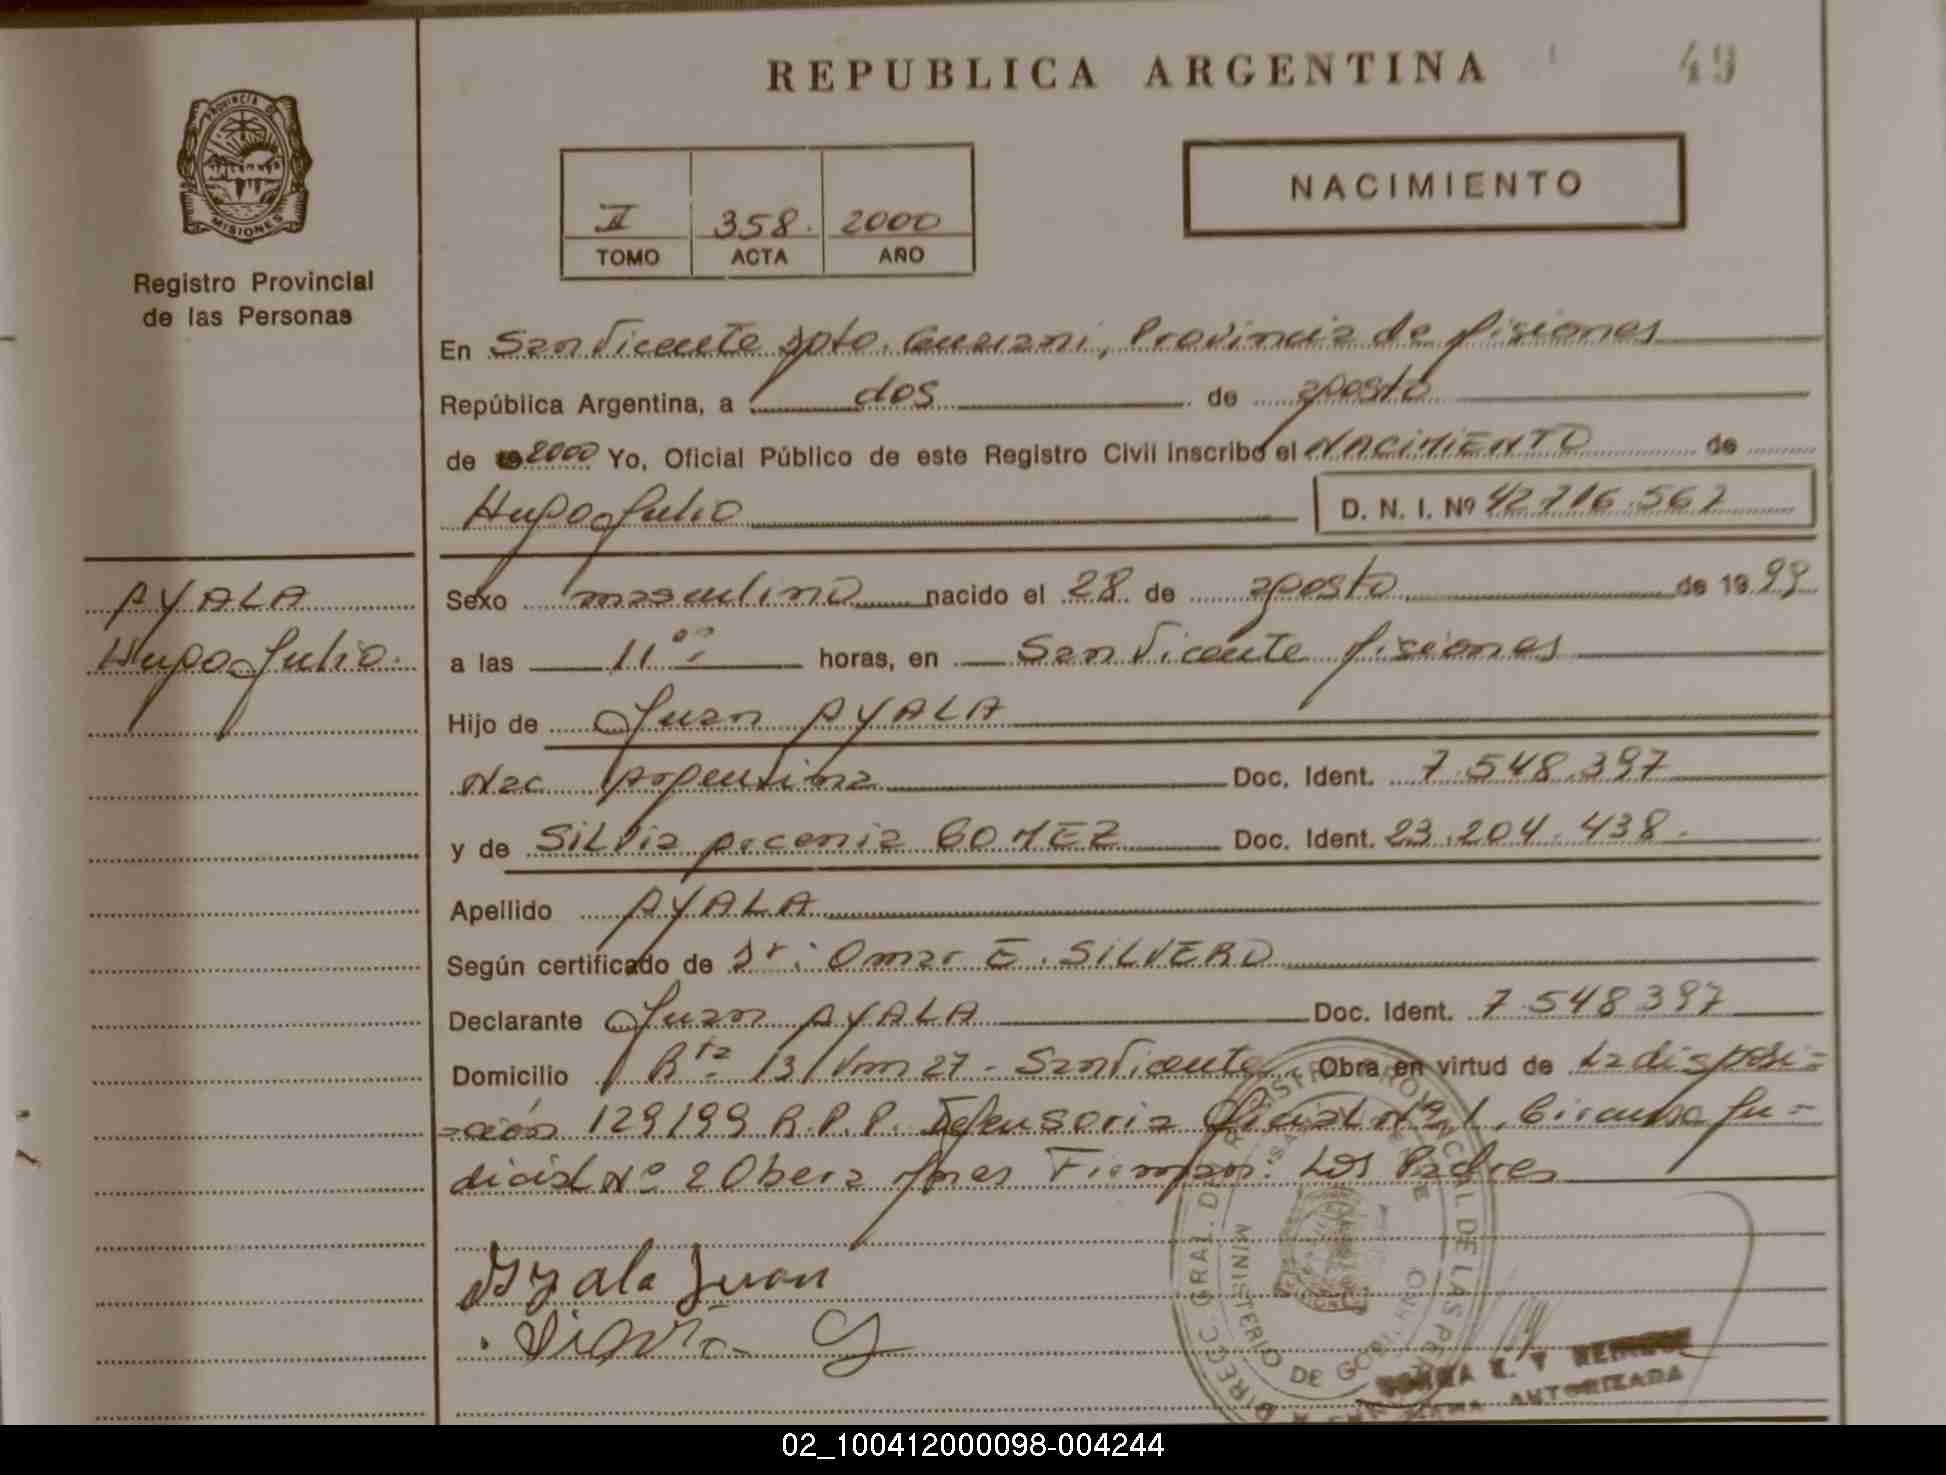 REPUBLICA ARGENTINA
49
PROVINCIA DE MISIONES
Registro Provincial
de las Personas
II 358. 2000
TOMO ACTA AÑO
NACIMIENTO
En San Vicente Dpto. Guarani, Provincia de Misiones
República Argentina, a dos de agosto
de 2000 Yo, Oficial Público de este Registro Civil inscribo el NACIMIENTO de
Hugo Julio D. N. I. Nº 42.716.567
AYALA
Hugo Julio.
Sexo masculino nacido el 28 de agosto de 1999
a las 11 horas, en San Vicente Misiones
Hijo de Juan AYALA
Nac Argentina Doc. Ident. 7.548.397
y de SILVia GOMEZ Doc. Ident. 23.204.438.
Apellido AYALA
Según certificado de Dr: Omar E. SILVERO
Declarante Juan AYALA Doc. Ident. 7.548397
Domicilio Rta 13 Km 27 - San Vicente. Obra en virtud de La disposi=
=ción 129/99 R.P.P. Defensoria Oficial Nº 1, Circuns Ju=
dicial Nº 2 Obera Mnes Firman: Los Padres
Ayala Juan
DIRECC. GRAL. DEL REGISTRO PROVINCIAL DE LAS PERSONAS
MINISTERIO DE GOBIERNO
AUTORIZADA
02_100412000098-004244